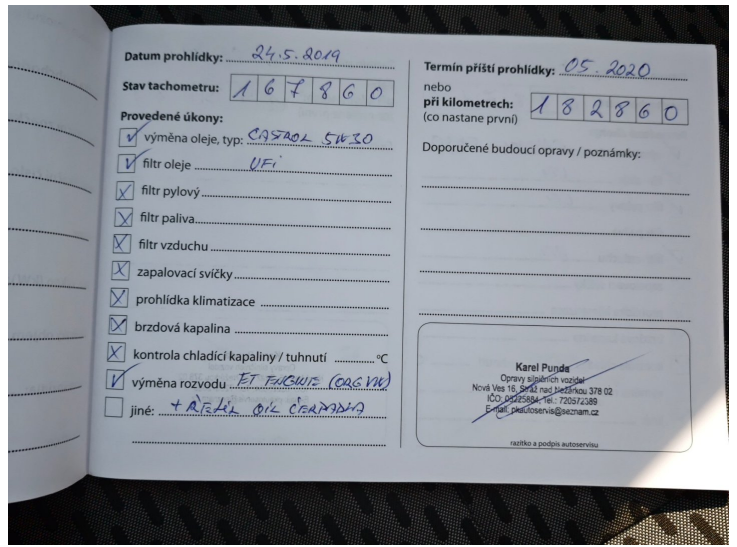 Datum prohlídky: 24.5.2019
Stav tachometru: 167860
Provedené úkony:
výměna oleje, typ: CASTROL 5W30
filtr oleje UFi
filtr pylový
filtr paliva
filtr vzduchu
zapalovací svíčky
prohlídka klimatizace
brzdová kapalina
kontrola chladící kapaliny / tuhnutí °C
výměna rozvodu ET ENGINE (ORG VW)
jiné: + ŘETĚZ OIL ČERPADLA
Termín příští prohlídky: 05.2020
nebo
při kilometrech: 182860
(co nastane první)
Doporučené budoucí opravy / poznámky:
Karel Punda
Opravy silničních vozidel
Nová Ves 16, Stráž nad Nežárkou 378 02
IČO: 05225884, Tel.: 720572389
E-mail: pkautoservis@seznam.cz
razítko a podpis autoservisu